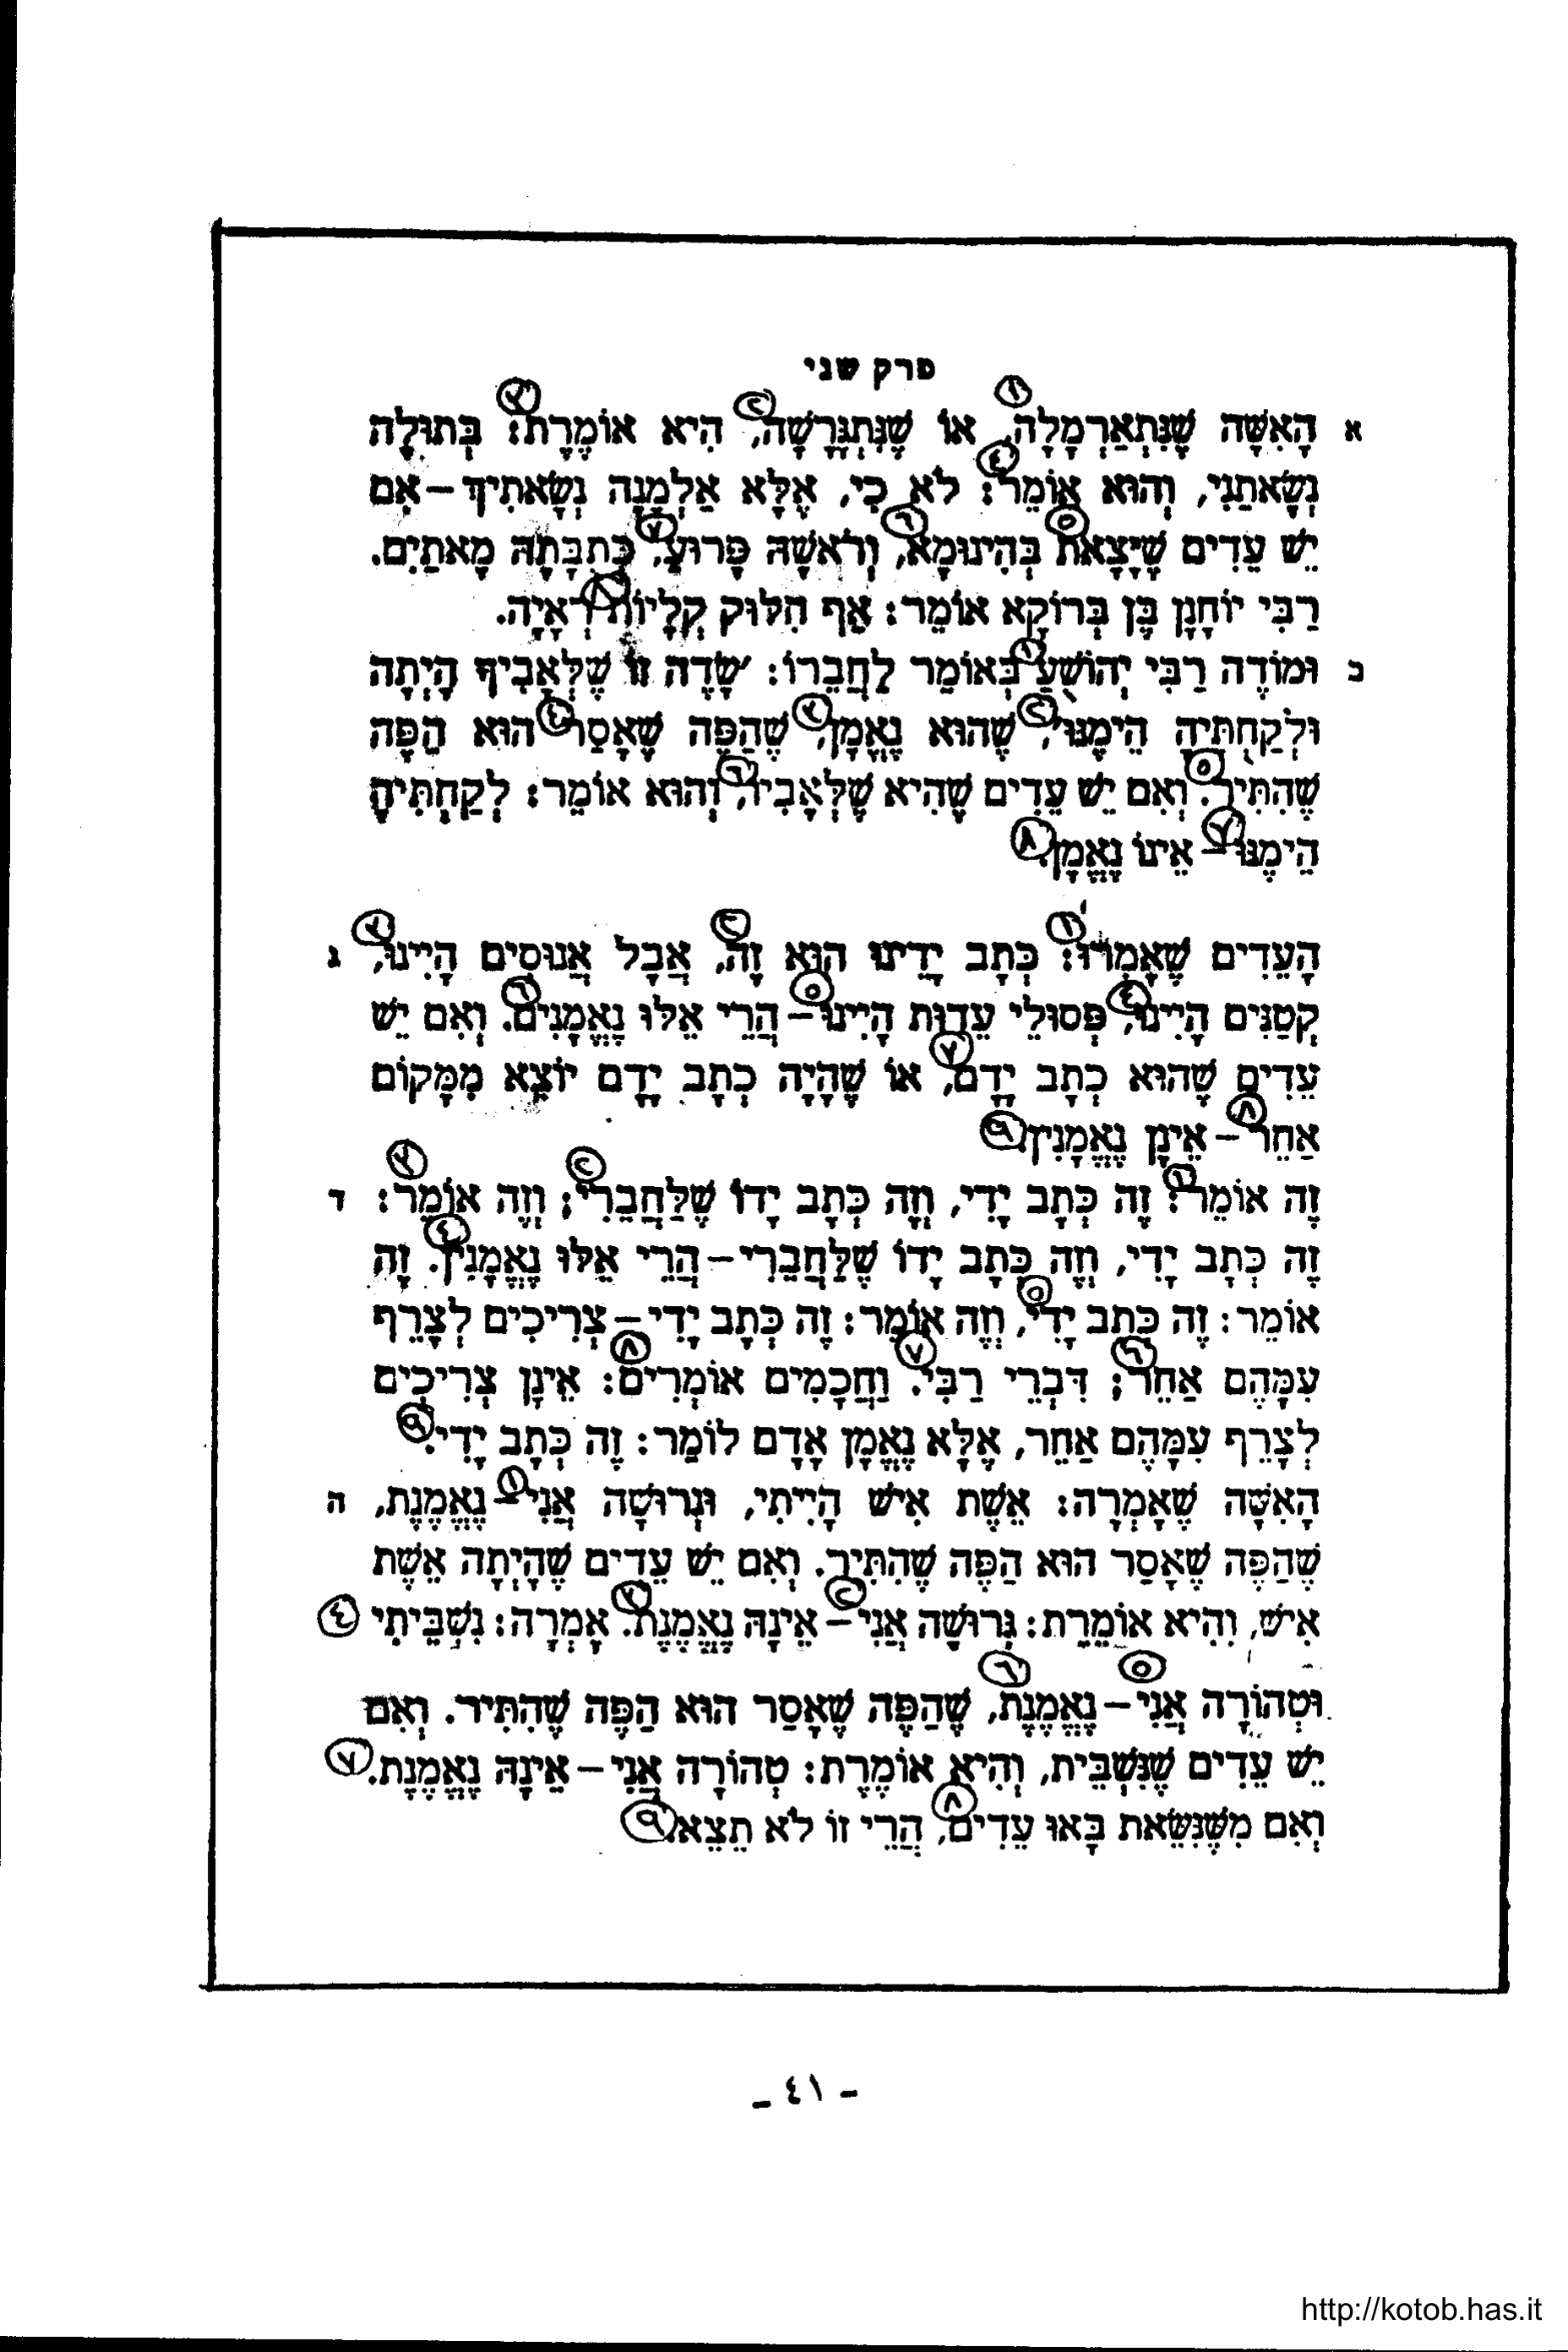 פרק שני
א הָאִשָּׁה שֶׁנִּתְאַרְמְלָה, ١ אוֹ שֶׁנִּתְגָּרְשָׁה, ٢ הִיא אוֹמֶרֶת: ٣ בְּתוּלָה
נְשָׂאתַנִי, וְהוּא אוֹמֵר: ٤ לֹא כִי, אֶלָּא אַלְמָנָה נְשָׂאתִיךְ – אִם
יֵשׁ עֵדִים שֶׁיָּצָאת ٥ בְּהִינוּמָא, ٦ וְרֹאשָׁהּ פָּרוּעַ, ٧ כְּתֻבָּתָהּ מָאתַיִם.
רַבִּי יוֹחָנָן בֶּן בְּרוֹקָא אוֹמֵר: אַף חִלּוּק קְלָיוֹת ٨ רְאָיָה.
ב וּמוֹדֶה רַבִּי יְהוֹשֻׁעַ ١ בְּאוֹמֵר לַחֲבֵרוֹ: שָׂדֶה זוֹ שֶׁלְּאָבִיךָ הָיְתָה
וּלְקַחְתִּיהָ הֵימֶנּוּ, ٢ שֶׁהוּא נֶאֱמָן, ٣ שֶׁהַפֶּה שֶׁאָסַר ٤ הוּא הַפֶּה
שֶׁהִתִּיר. ٥ וְאִם יֵשׁ עֵדִים שֶׁהִיא שֶׁלְּאָבִיו, ٦ וְהוּא אוֹמֵר: לְקַחְתִּיהָ
הֵימֶנּוּ ٧ – אֵינוֹ נֶאֱמָן. ٨
ג הָעֵדִים שֶׁאָמְרוּ: ١ כְּתָב יָדֵינוּ הוּא זֶה, ٢ אֲבָל אֲנוּסִים הָיִינוּ, ٣
קְטַנִּים הָיִינוּ, ٤ פְּסוּלֵי עֵדוּת הָיִינוּ ٥ – הֲרֵי אֵלּוּ נֶאֱמָנִים. ٦ וְאִם יֵשׁ
עֵדִים שֶׁהוּא כְתָב יָדָם, ٧ אוֹ שֶׁהָיָה כְתָב יָדָם יוֹצֵא מִמָּקוֹם
אַחֵר ٨ – אֵינָן נֶאֱמָנִין. ٩
ד זֶה אוֹמֵר: ١ זֶה כְּתָב יָדִי, וְזֶה כְּתָב יָדוֹ שֶׁלַּחֲבֵרִי; ٢ וְזֶה אוֹמֵר: ٣
זֶה כְּתָב יָדִי, וְזֶה כְּתָב יָדוֹ שֶׁלַּחֲבֵרִי – הֲרֵי אֵלּוּ נֶאֱמָנִין. ٤ זֶה
אוֹמֵר: זֶה כְּתָב יָדִי, ٥ וְזֶה אוֹמֵר: זֶה כְּתָב יָדִי – צְרִיכִים לְצָרֵף
עִמָּהֶם אַחֵר; ٦ דִּבְרֵי רַבִּי. ٧ וַחֲכָמִים אוֹמְרִים: ٨ אֵינָן צְרִיכִים
לְצָרֵף עִמָּהֶם אַחֵר, אֶלָּא נֶאֱמָן אָדָם לוֹמַר: זֶה כְּתָב יָדִי. ٩
ה הָאִשָּׁה שֶׁאָמְרָה: אֵשֶׁת אִישׁ הָיִיתִי, וּגְרוּשָׁה אֲנִי ١ – נֶאֱמֶנֶת,
שֶׁהַפֶּה שֶׁאָסַר הוּא הַפֶּה שֶׁהִתִּיר. וְאִם יֵשׁ עֵדִים שֶׁהָיְתָה אֵשֶׁת
אִישׁ, וְהִיא אוֹמֶרֶת: גְּרוּשָׁה אֲנִי ٢ – אֵינָהּ נֶאֱמֶנֶת. ٣ אָמְרָה: נִשְׁבֵּיתִי ٤
וּטְהוֹרָה אֲנִי ٥ – נֶאֱמֶנֶת, ٦ שֶׁהַפֶּה שֶׁאָסַר הוּא הַפֶּה שֶׁהִתִּיר. וְאִם
יֵשׁ עֵדִים שֶׁנִּשְׁבֵּית, וְהִיא אוֹמֶרֶת: טְהוֹרָה אֲנִי – אֵינָהּ נֶאֱמֶנֶת. ٧
וְאִם מִשֶּׁנִּשֵּׂאת בָּאוּ עֵדִים, ٨ הֲרֵי זוֹ לֹא תֵצֵא. ٩
- ٤١ -
http://kotob.has.it